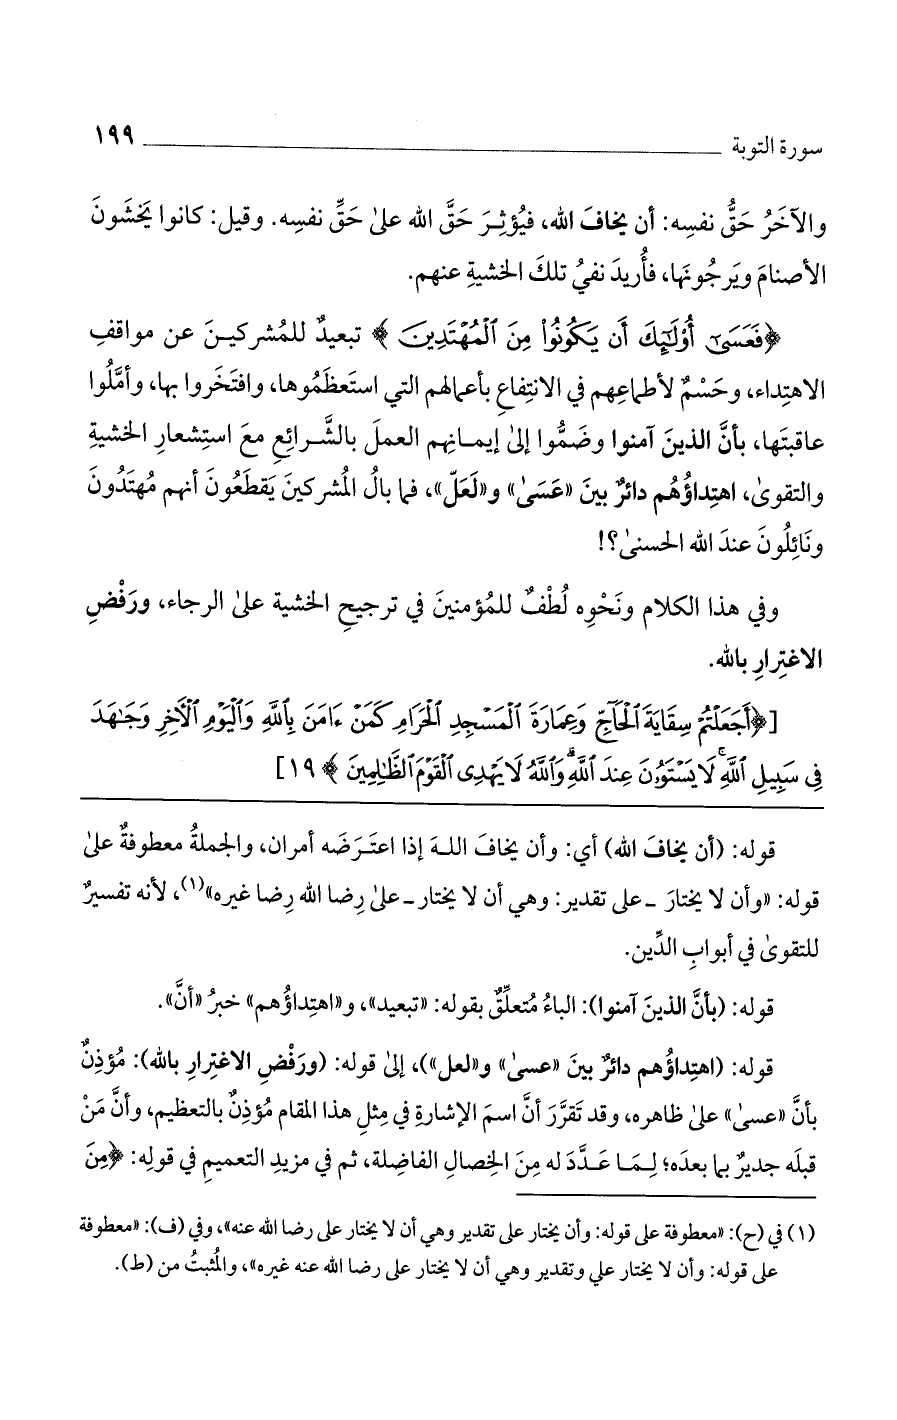 سورة التوبة ١٩٩
والآخَرُ حَقُّ نفسِه: أن يخافَ الله، فيُؤثِـرَ حَقَّ الله علىٰ حَقِّ نفسِه. وقيل: كانوا يَخشَونَ
الأصنامَ ويَرجُونَها، فأُريدَ نفيُ تلكَ الخشيةِ عنهم.
﴿فَعَسَىٰٓ أُوْلَٰٓئِكَ أَن يَكُونُواْ مِنَ ٱلْمُهْتَدِينَ﴾ تبعيدٌ للمُشركيـنَ عن مواقفِ
الاهتِداء، وحَسْمٌ لأطماعِهم في الانتِفاعِ بأعمالهم التي استَعظَمُوها، وافتَخَروا بها، وأمَّلُوا
عاقبتَها، بأنَّ الذينَ آمنوا وضَمُّوا إلىٰ إيمـانِهم العملَ بالشَّـرائعِ معَ استِشعارِ الخشيةِ
والتقوىٰ، اهتِداؤُهُم دائرٌ بينَ «عَسَىٰ» و«لَعَلّ»، فما بالُ المُشركينَ يَقطَعُونَ أنهم مُهتَدُونَ
ونَائِلُونَ عندَ الله الحسنىٰ؟!
وفي هذا الكلام ونَحْوِه لُطْفٌ للمُؤمنينَ في ترجيحِ الخشية علىٰ الرجاء، ورَفْضِ
الاغتِرارِ بالله.
[﴿أَجَعَلْتُمْ سِقَايَةَ ٱلْحَآجِّ وَعِمَارَةَ ٱلْمَسْجِدِ ٱلْحَرَامِ كَمَنْ ءَامَنَ بِٱللَّهِ وَٱلْيَوْمِ ٱلْأَخِرِ وَجَٰهَدَ
فِى سَبِيلِ ٱللَّهِ ۚ لَا يَسْتَوُۥنَ عِندَ ٱللَّهِ ۗ وَٱللَّهُ لَا يَهْدِى ٱلْقَوْمَ ٱلظَّٰلِمِينَ﴾ ١٩]
قوله: (أن يخافَ الله) أي: وأن يخافَ اللهَ إذا اعتَـرَضَه أمران، والجملةُ معطوفةٌ علىٰ
قوله: «وأن لا يختارَ -على تقدير: وهي أن لا يختار- علىٰ رِضا الله رِضا غيره»(١)، لأنه تفسيرٌ
للتقوىٰ في أبوابِ الدِّين.
قوله: (بأنَّ الذينَ آمنوا): الباءُ مُتعلِّقٌ بقوله: «تبعيد»، و«اهتِداؤُهم» خبرُ «أنَّ».
قوله: (اهتِداؤُهم دائرٌ بينَ «عسىٰ» و«لعل»)، إلىٰ قوله: (ورَفْضِ الاغتِرارِ بالله): مُؤذِنٌ
بأنَّ «عسىٰ» علىٰ ظاهره، وقد تقرَّرَ أنَّ اسمَ الإشارةِ في مِثلِ هذا المقام مُؤذِنٌ بالتعظيم، وأنَّ مَنْ
قبلَه جديرٌ بما بعدَه؛ لِـمَـا عَـدَّدَ له مِنَ الخِصالِ الفاضِلة، ثم في مزيدِ التعميمِ في قولِه: ﴿مِنَ
(١) في (ح): «معطوفة على قوله: وأن يختار على تقدير وهي أن لا يختار على رضا الله عنه»، وفي (ف): «معطوفة
على قوله: وأن لا يختار علي وتقدير وهي أن لا يختار على رضا الله عنه غيره»، والمُثبتُ من (ط).